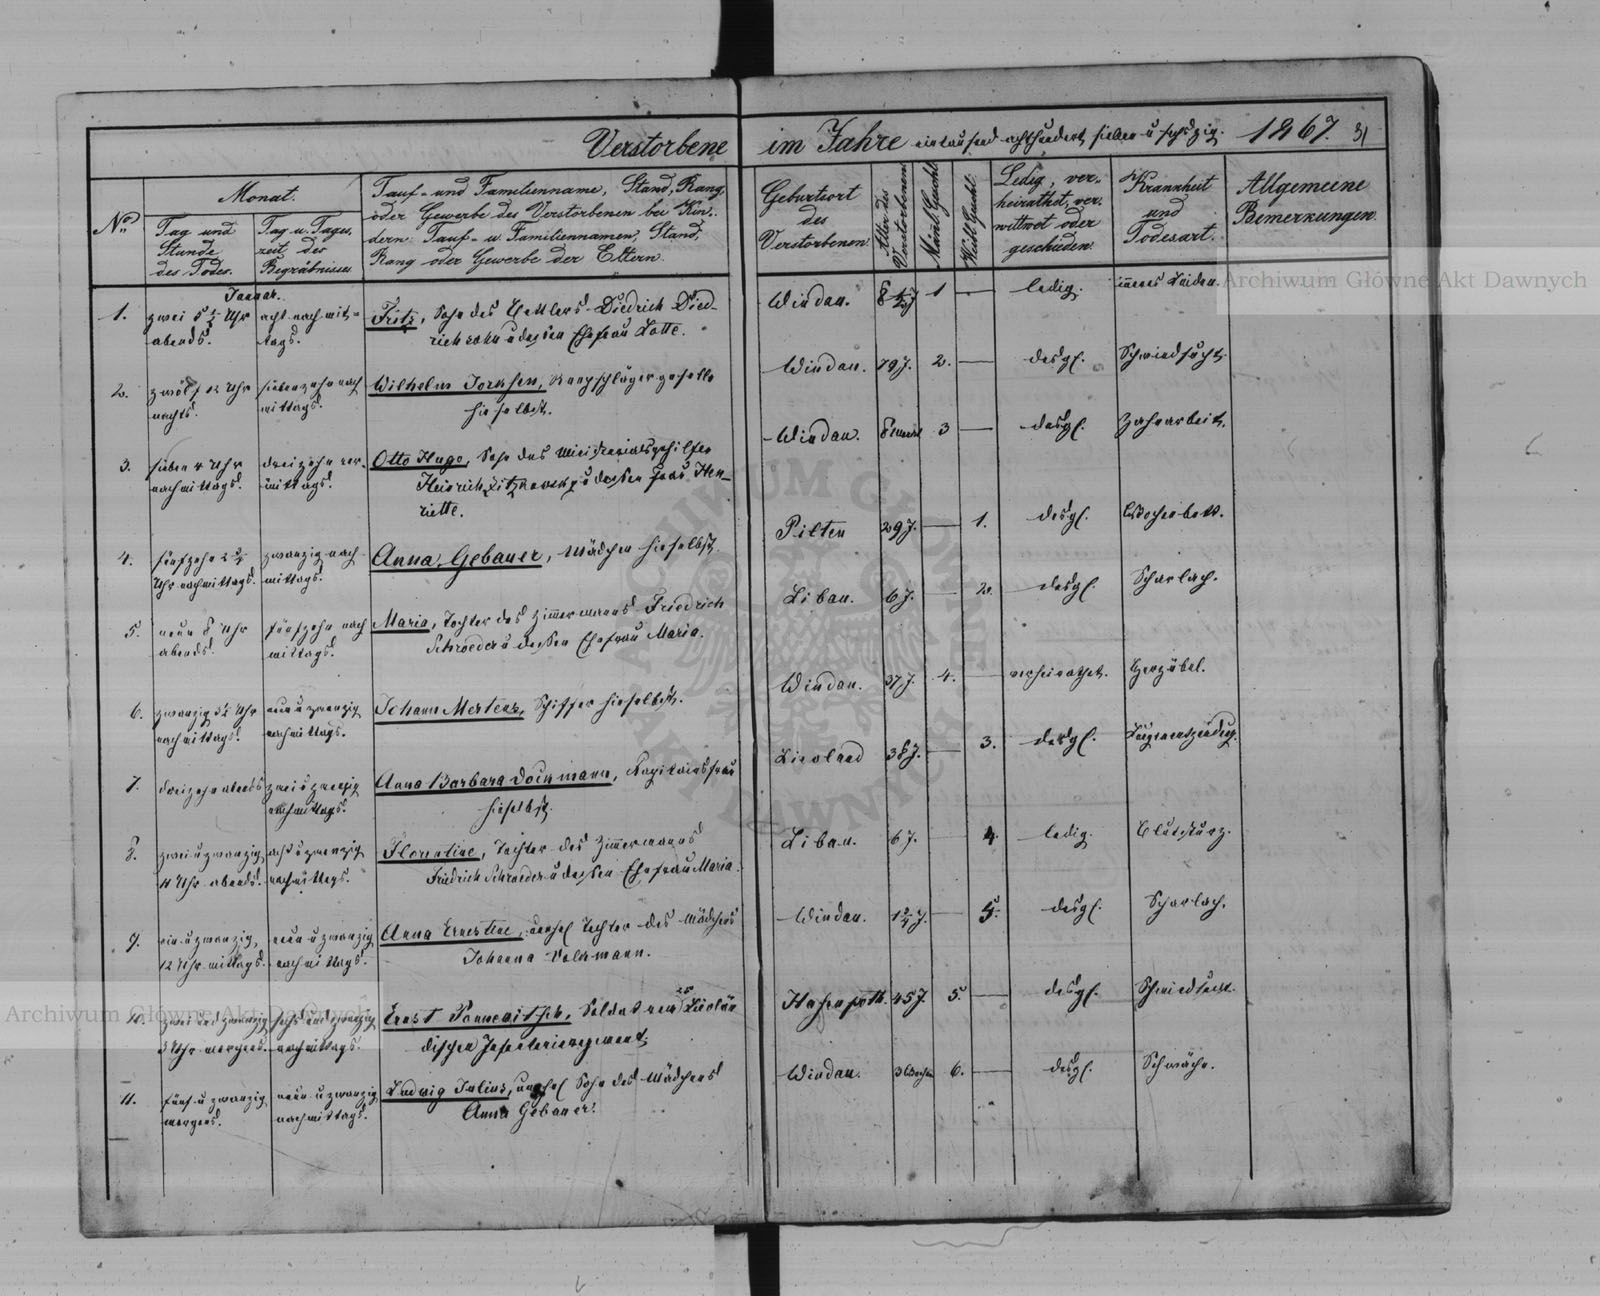 Verstorbene im Jahre eintausend achthundert sieben u sechszig. 1867. 31
No.
Monat.
Tag und
Stunde
des Todes.
Tag u. Tages
zeit des
Begräbnisses
Tauf- und Familienname, Stand, Rang
oder Gewerbe des Verstorbenen bei Kin-
dern Tauf- u. Familiennamen, Stand,
Rang oder Gewerbe der Eltern.
Geburtsort
des
Verstorbenen
Alter des
Verstorbenen
Männl. Geschl.
Weibl. Geschl.
Ledig, ver-
heirathet, ver-
wittwet oder
geschieden.
Krankheit
und
Todesart.
Allgemeine
Bemerkungen.
Januar.
1. zwei 5 1/2 Uhr
abends.
acht nachmit-
tags.
Fritz, Sohn des Diedrich Died-
richsohn u dessen Ehefrau Lotte.
Windau. 1 — ledig. inneres Leiden.
2. zwölf 12 Uhr
nachts.
siebenzehn nach
mittags.
Wilhelm Jorksen,
hieselbst.
Windau. 19 J. 2. — desgl. Schwindsucht.
3. sieben 4 Uhr
nachmittags.
dreizehn vor-
mittags.
Otto Hugo, Sohn des Ministerialsgehilfen
Heinrich u dessen Frau Hen-
riette.
Windau. 3 — desgl. Zahnarbeit.
4. fünfzehn 2 3/4
Uhr nachmittags.
zwanzig nach
mittags.
Anna Gebauer, Mädchen hieselbst.
Pilten 29 J. — 1. desgl. Wochenbett.
5. neun 8 Uhr
abends.
fünfzehn nach
mittags.
Maria, Tochter des Zimmermanns Friedrich
Schroeder u dessen Ehefrau Maria.
Libau. 6 J. — 2. desgl. Scharlach.
6. zwanzig Uhr
nachmittags.
neun u zwanzig
nachmittags.
Johann Mertens, Schiffer hieselbst.
Windau. 37 J. 4. — verheirathet. Herzübel.
7. dreizehn abends
zwei u zwanzig
nachmittags.
Anna Barbara Dockmann, Kapitainsfrau
hieselbst.
Livland 38 J. — 3. desgl.
8. zwei u zwanzig
11 Uhr abends.
acht u zwanzig
nachmittags.
Florentine, Tochter des Zimmermanns
Friedrich Schroeder u dessen Ehefrau Maria.
Libau. 6 J. — 4. ledig. Blutsturz.
9. ein u zwanzig,
12 Uhr mittags.
neun u zwanzig
nachmittags.
Anna Ernestine, unehel Tochter des Mädchens
Johanna Volkmann.
Windau. 1 3/4 J. — 5. desgl. Scharlach.
10. zwei und zwanzig
3 Uhr morgens.
sechs und zwanzig
nachmittags.
Ernst Soldat vom Livlän
dischen Infanterieregiment.
Hasenpoth. 45 J. 5. — desgl. Schwindsucht.
11. fünf u zwanzig
morgens.
neun u zwanzig
nachmittags.
Ludwig Julius, unehel Sohn des Mädchens
Anna Gebauer.
Windau. 3 Wochen 6. — desgl. Schwäche.
Archiwum Główne Akt Dawnych
Archiwum Główne Akt Dawnych
ARCHIWUM GŁÓWNE AKT DAWNYCH